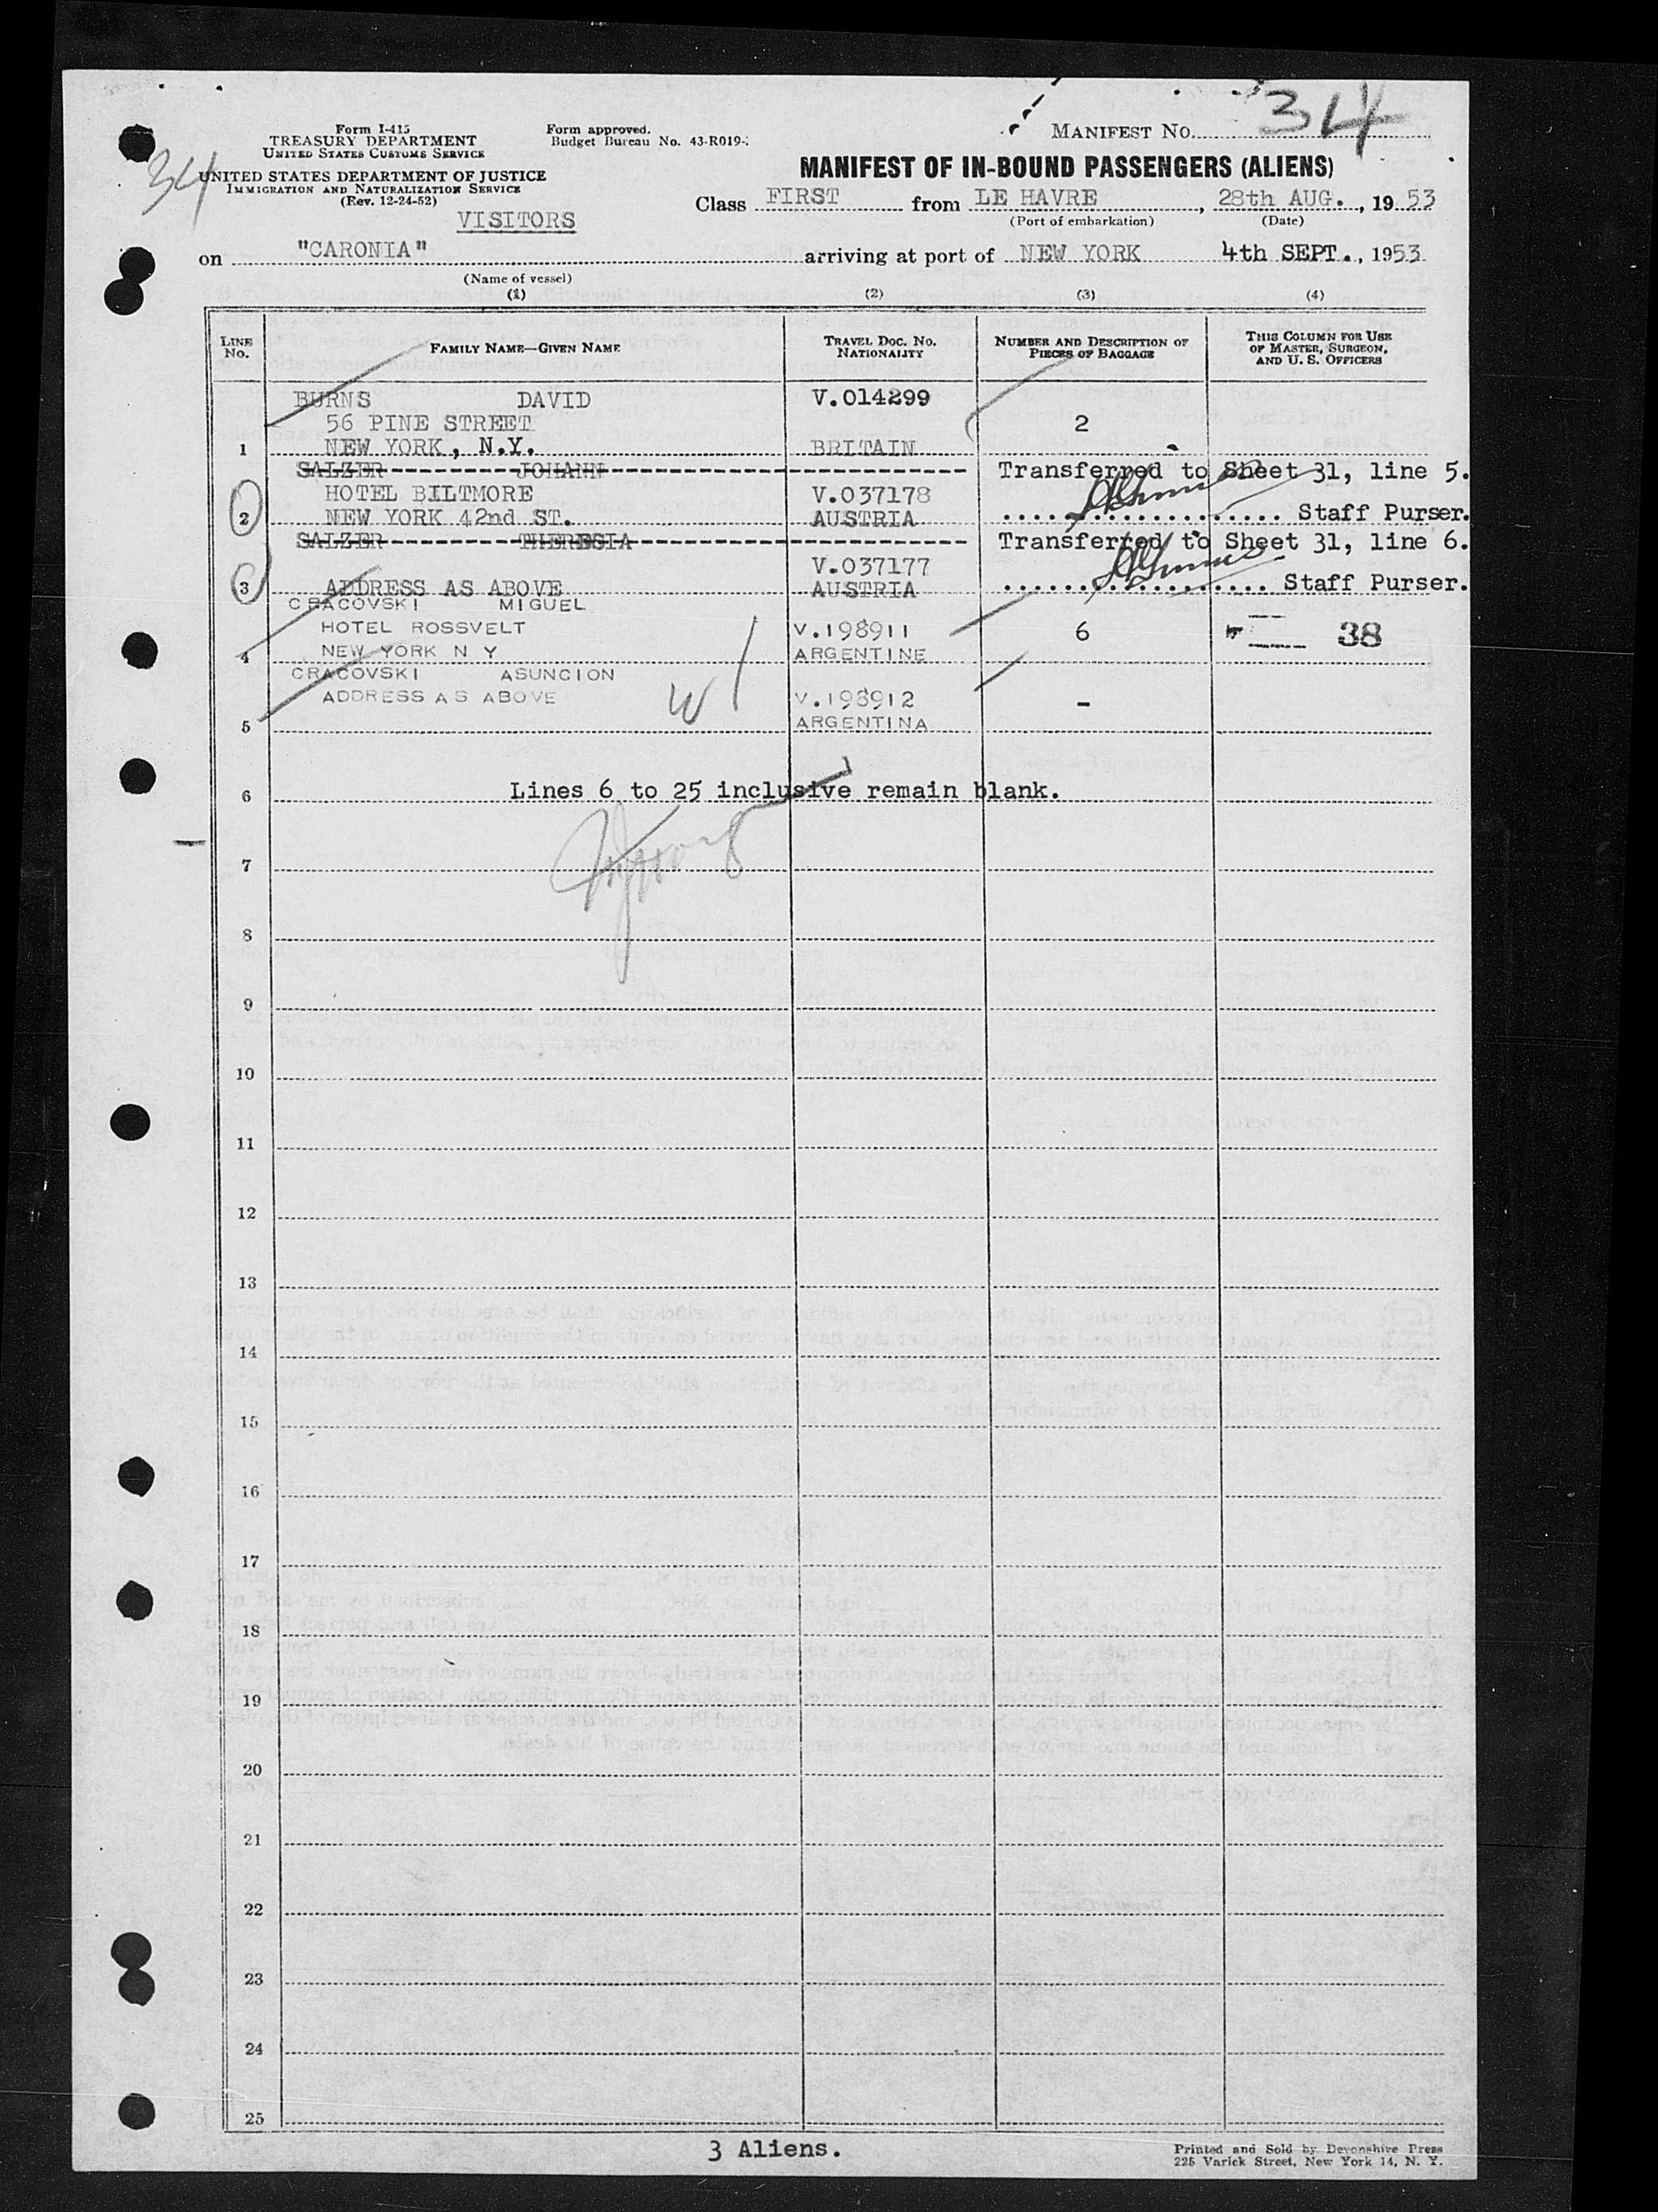 34
MANIFEST NO. 34
Form I-415
TREASURY DEPARTMENT
UNITED STATES CUSTOMS SERVICE
Form approved.
Budget Bureau No. 43-R019-
UNITED STATES DEPARTMENT OF JUSTICE
IMMIGRATION AND NATURALIZATION SERVICE
(Rev. 12-24-52)
MANIFEST OF IN-BOUND PASSENGERS (ALIENS)
Class FIRST from LE HAVRE, 28th AUG., 1953
(Port of embarkation) (Date)
VISITORS
on "CARONIA" arriving at port of NEW YORK 4th SEPT., 1953
(Name of vessel)
(1) (2) (3) (4)
LINE No. FAMILY NAME—GIVEN NAME TRAVEL DOC. NO. NATIONALITY NUMBER AND DESCRIPTION OF PIECES OF BAGGAGE THIS COLUMN FOR USE OF MASTER, SURGEON, AND U. S. OFFICERS
BURNS DAVID V.014299
56 PINE STREET 2
1 NEW YORK, N.Y. BRITAIN
SALZER JOHANN Transferred to Sheet 31, line 5.
HOTEL BILTMORE V.037178
2 NEW YORK 42nd ST. AUSTRIA Staff Purser.
SALZER THERESIA Transferred to Sheet 31, line 6.
V.037177
3 ADDRESS AS ABOVE AUSTRIA Staff Purser.
CRACOVSKI MIGUEL
HOTEL ROSSVELT V.198911 6 38
4 NEW YORK N Y ARGENTINE
CRACOVSKI ASUNCION
ADDRESS AS ABOVE V.198912 -
5 ARGENTINA
6 Lines 6 to 25 inclusive remain blank.
7
8
9
10
11
12
13
14
15
16
17
18
19
20
21
22
23
24
25
3 Aliens.
Printed and Sold by Devonshire Press
225 Varick Street, New York 14, N. Y.